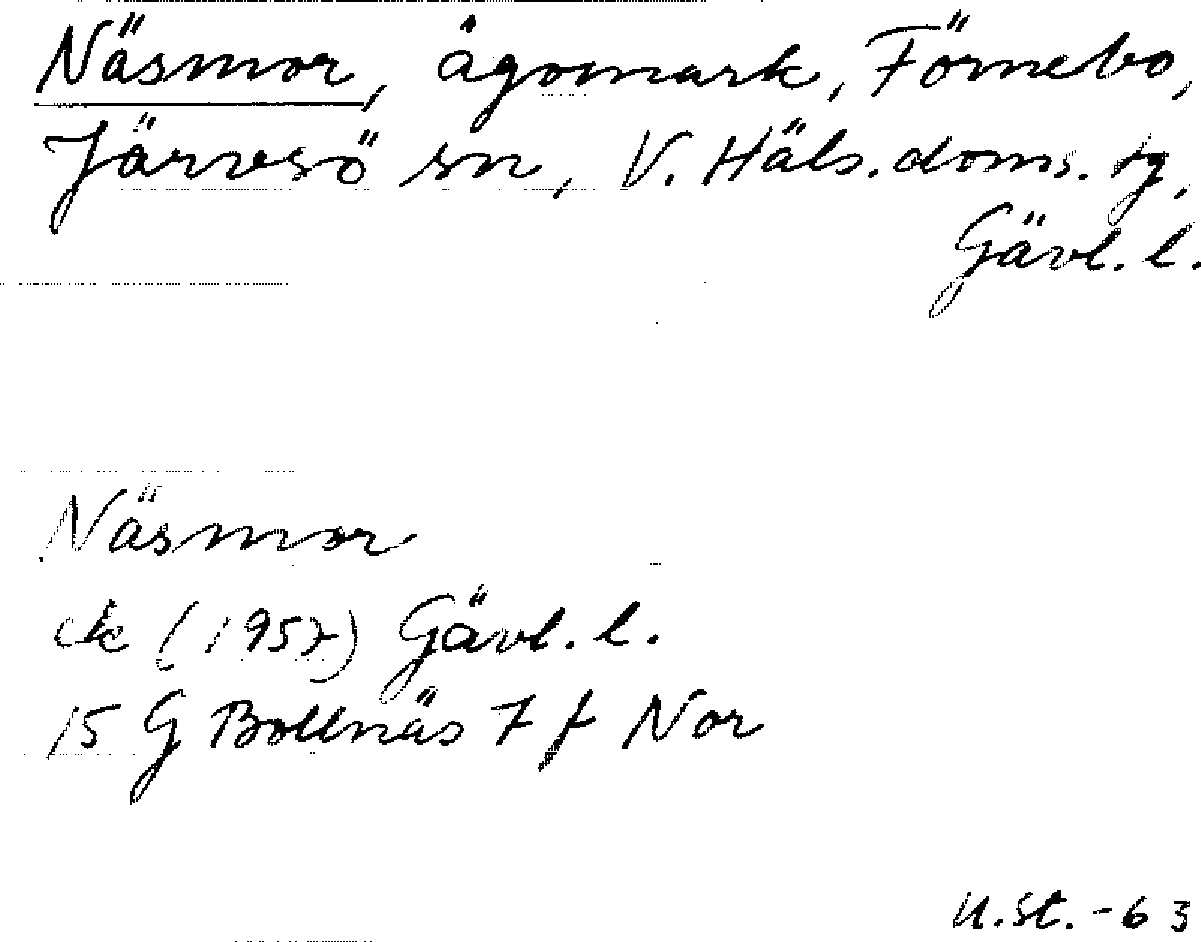 Näsmor, ägomark, Förnebo,
Järvsö sn, V. Häls. doms. tg,
Gävl. l.
Näsmor
ek (1957) Gävl. l.
15 G Bollnäs 7 f Nor
U.St. -63